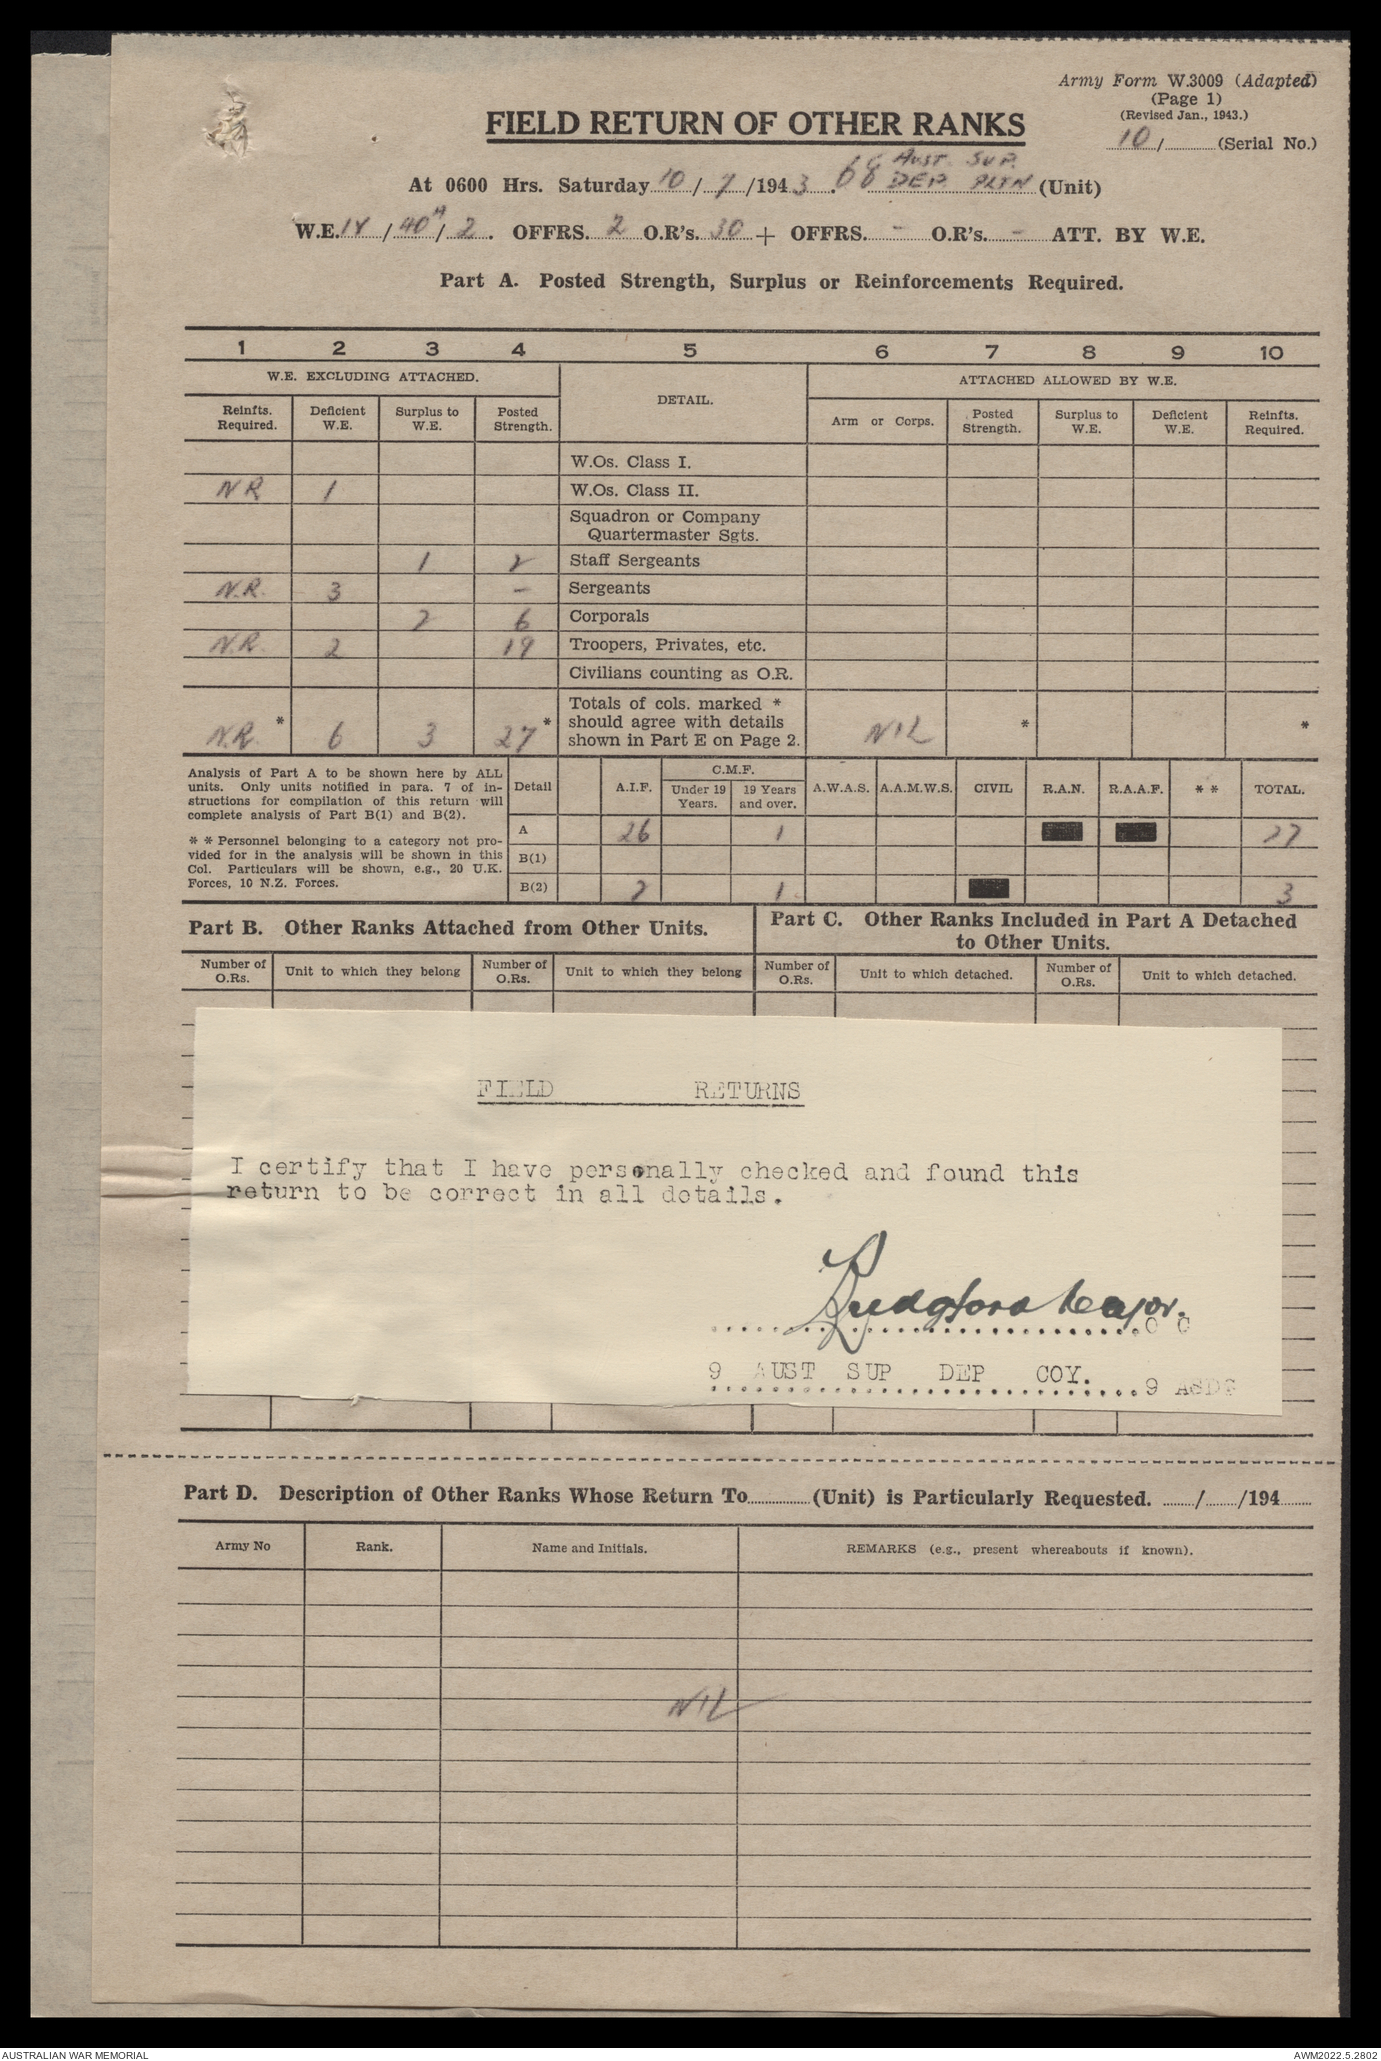 Army Form W.3009 (Adapted)
(Page 1)
(Revised Jan., 1943.)
10 / (Serial No.)
FIELD RETURN OF OTHER RANKS
At 0600 Hrs. Saturday 10 / 7 /1943. 68 AUST. SUP. DEP. PLTN (Unit)
W.E. IV / 40A / 2. OFFRS. 2 O.R's. 30 + OFFRS. - O.R's. - ATT. BY W.E.
Part A. Posted Strength, Surplus or Reinforcements Required.
1 2 3 4 5 6 7 8 9 10
W.E. EXCLUDING ATTACHED. DETAIL. ATTACHED ALLOWED BY W.E.
Reinfts. Required. Deficient W.E. Surplus to W.E. Posted Strength. Arm or Corps. Posted Strength. Surplus to W.E. Deficient W.E. Reinfts. Required.
W.Os. Class I.
NR 1 W.Os. Class II.
Squadron or Company
Quartermaster Sgts.
1 2 Staff Sergeants
N.R. 3 - Sergeants
2 6 Corporals
N.R. 2 19 Troopers, Privates, etc.
Civilians counting as O.R.
Totals of cols. marked *
* * should agree with details * *
N.R. 6 3 27 shown in Part E on Page 2. NIL
Analysis of Part A to be shown here by ALL
units. Only units notified in para. 7 of in-
structions for compilation of this return will
complete analysis of Part B(1) and B(2).
* * Personnel belonging to a category not pro-
vided for in the analysis will be shown in this
Col. Particulars will be shown, e.g., 20 U.K.
Forces, 10 N.Z. Forces.
Detail A.I.F. C.M.F. Under 19 Years. 19 Years and over. A.W.A.S. A.A.M.W.S. CIVIL R.A.N. R.A.A.F. * * TOTAL.
A 26 1 27
B(1)
B(2) 2 1 3
Part B. Other Ranks Attached from Other Units.
Part C. Other Ranks Included in Part A Detached
to Other Units.
Number of O.Rs. Unit to which they belong Number of O.Rs. Unit to which they belong Number of O.Rs. Unit to which detached. Number of O.Rs. Unit to which detached.
FIELD RETURNS
I certify that I have personally checked and found this
return to be correct in all details.
Bridgford Major.
O C
9 AUST SUP DEP COY. 9 ASDC
Part D. Description of Other Ranks Whose Return To (Unit) is Particularly Requested. / /194
Army No Rank. Name and Initials. REMARKS (e.g., present whereabouts if known).
NIL
AUSTRALIAN WAR MEMORIAL
AWM2022.5.2802